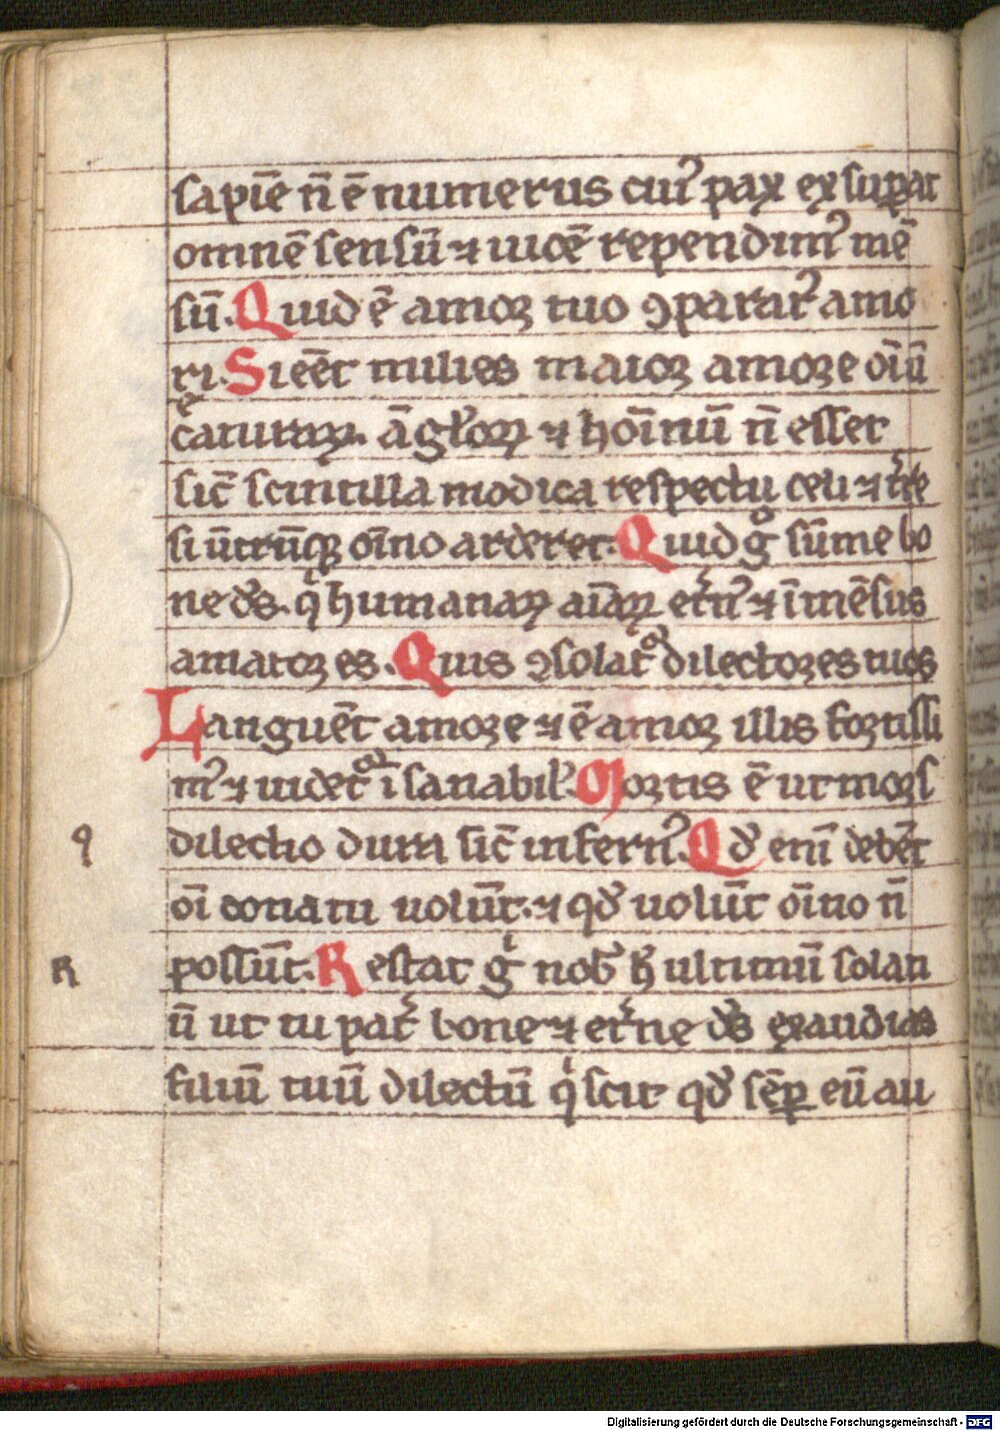 sapiē n̄ ē numerus cuiꝰ pax exsuꝑat
omnē sensū ⁊ uicē rependimꝰ mē
sū. Quid ē amor tuo ꝯparatꝰ amo
ri. Si eēt milies maior amore oīū
c̾aturaꝝ. āgłoꝝ ⁊ hoīnū n̄ esset
sic̄ scintilla modica respectu celi ⁊ t̾re
si ūtrūqꝫ oīno arderet. Quid gͦ sūme bo
ne ds̄. qͥ humanaꝝ aīaꝝ et̾nꝰ ⁊ īmēsus
amator es. Quis ꝯsolat᷑ dilectores tuos
Languēt amore ⁊ ē amor illis fortissi
mꝰ ⁊ uidet᷑ īsanabil᷑. Mortis ē ut mors
q dilectio dura sic̄ infernꝰ. Qd̄ enī debēt
oī conatu uolūt. ⁊ qd̄ uolūt oīno n̄
R possūt. Restat gͥ nob̄ h̄ ultimū solati
ū ut tu pat̾ bone ⁊ et̾ne ds̄ exaudias
filiū tuū dilectū qͥ scit qd̄ sēꝑ eū au
Digitalisierung gefördert durch die Deutsche Forschungsgemeinschaft - DFG